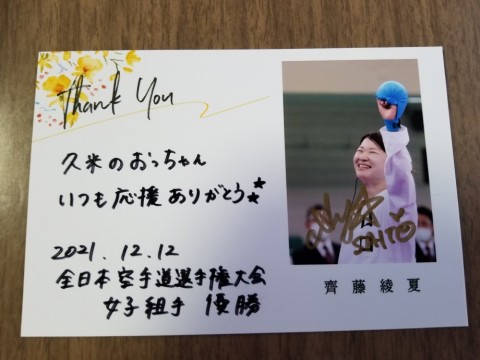 Thank You
久米のおっちゃん
いつも応援ありがとう★★
2021.12.12
全日本空手道選手権大会
女子組手 優勝
齊藤綾夏